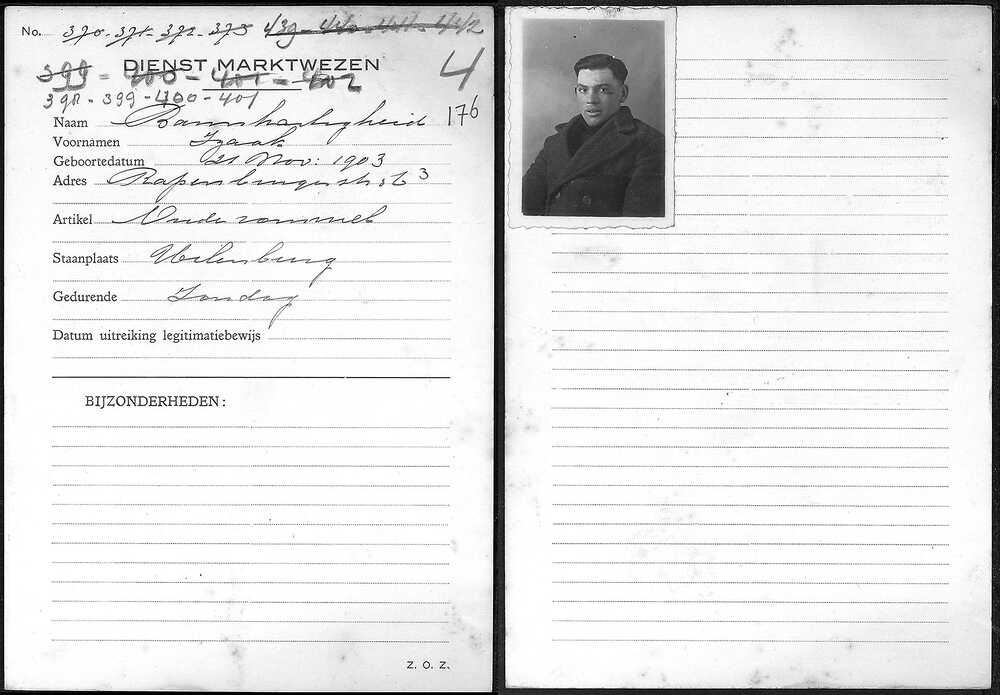 No. 370 - 371 - 372 - 373 439 - 440 - 441 - 442
DIENST MARKTWEZEN
399 - 400 - 401 - 402
4
398 - 399 - 400 - 401
Naam Barmhartigheid 176
Voornamen Izaak
Geboortedatum 21 Nov: 1903
Adres Rapenburgerstr 3
Artikel Oude rommel
Staanplaats Uilenburg
Gedurende Zondag
Datum uitreiking legitimatiebewijs
BIJZONDERHEDEN:
Z. O. Z.